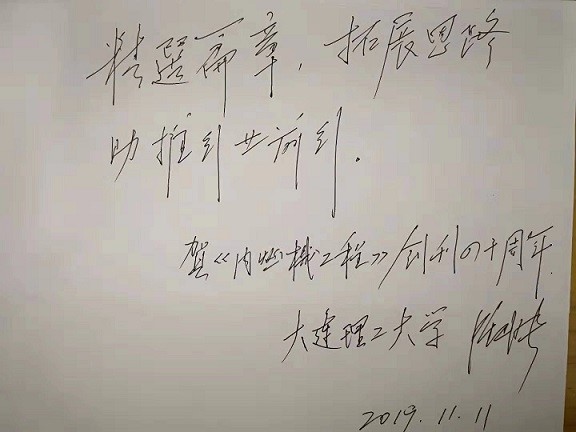 精選篇章，拓展思路
助推行业前行。
贺《内燃机工程》创刊四十周年
大连理工大学
2019.11.11